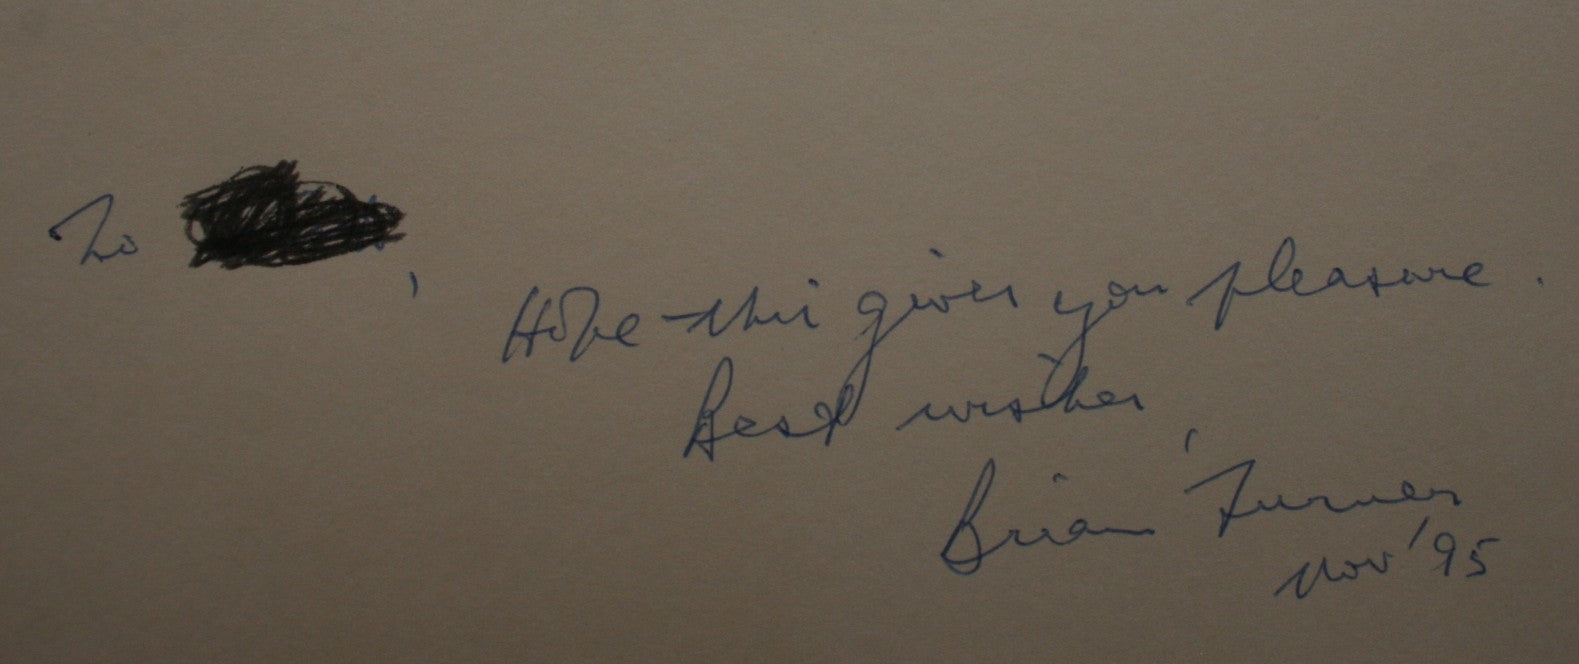 To ,
Hope this gives you pleasure.
Best wishes,
Brian Turner
Nov '95